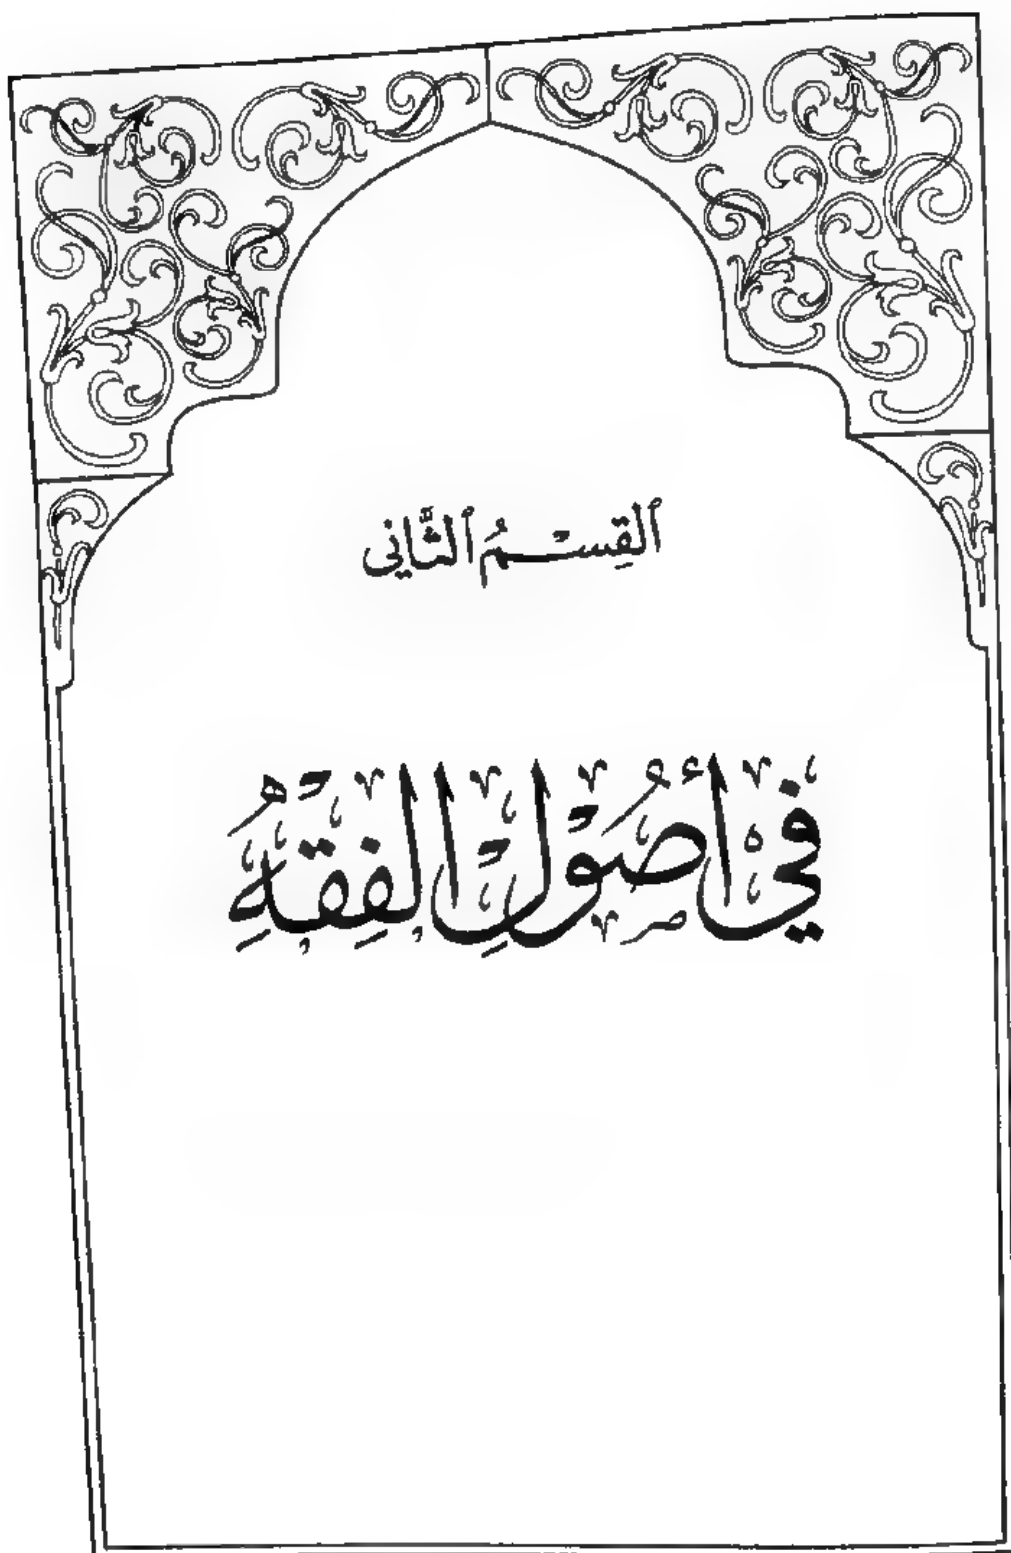 ٱلقِسْمُ ٱلثَّانِي
في أُصُوْلِ الفِقْهِ